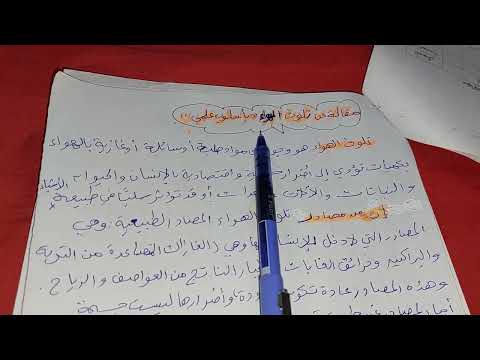 مقالة عن تلوث الهواء بأسلوب علمي
تلوث الهواء هو وجود مواد صلبة أو سائلة أو غازية بالهواء
بكميات تؤدي إلى أضرار واقتصادية بالإنسان والحيوان
والنباتات والآلات أو قد تؤثر سلبًا في طبيعة الأشياء
مصادر تلوث الهواء المصادر الطبيعية وهي
المصادر التي لا دخل للإنسان بها وهي الغازات المتصاعدة من التربة
والبراكين وحرائق الغابات الناتج من العواصف والرياح.
وهذه المصادر عادة تكون وأضرارها ليست جسيمة